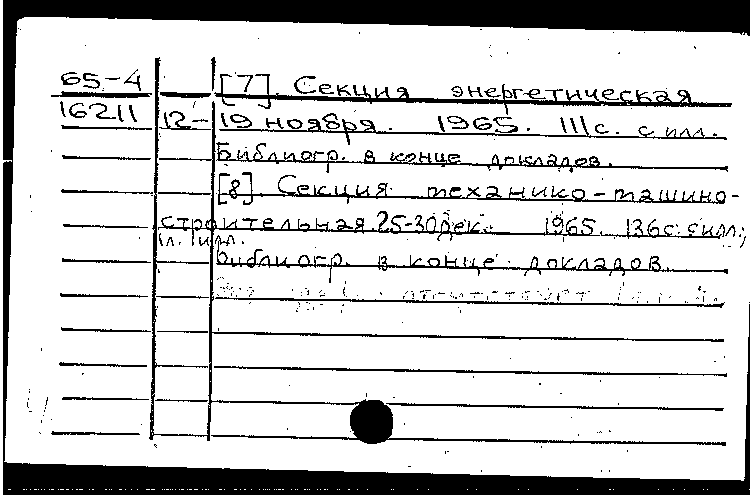 65-4 [7]. Секция энергетическая
16211 12-19 ноября. 1965. 111с. с илл.
Библиогр. в конце докладов.
[8]. Секция механико-машино-
строительная. 25-30 дек. 1965. 136с. с илл.;
1л. илл.
Библиогр. в конце докладов.
отсутствует